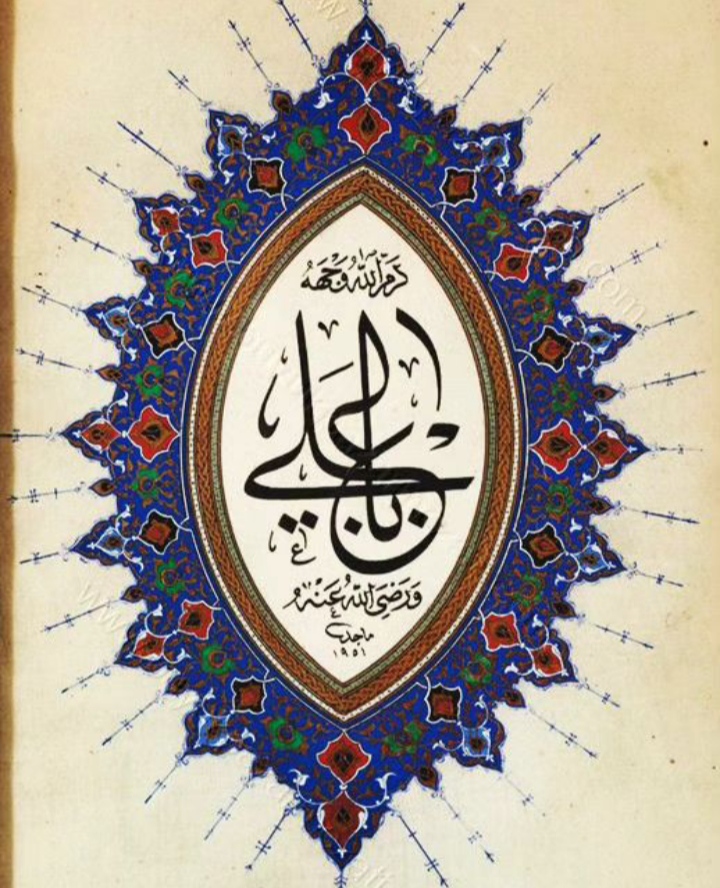 كَرَّمَ اللّٰهُ وَجْهَهُ
جناب علي
وَرَضِيَ اللّٰهُ عَنْهُ
ماجد
١٩٥١